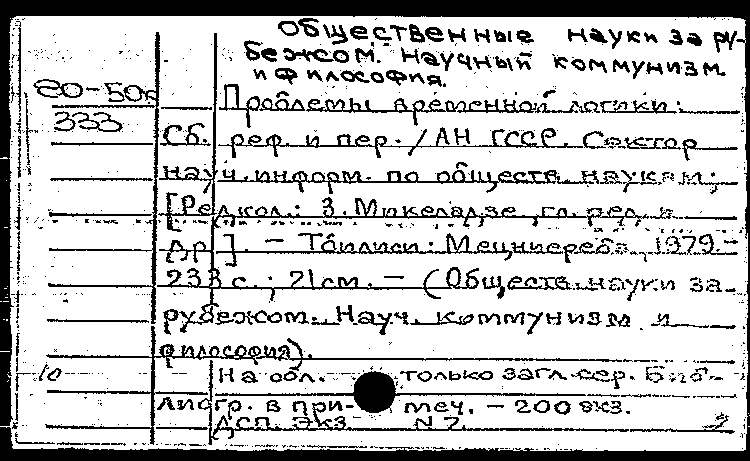 Общественные науки за ру-
бежом. Научный коммунизм
и философия.
80-50к
333
Проблемы временной логики:
Сб. реф. и пер. / АН ГССР. Сектор
науч. информ. по обществ. наукам;
[Редкол.: З. Микеладзе, гл. ред. и
др.]. - Тбилиси: Мецниереба, 1979.-
233 с.; 21 см. - (Обществ. науки за
рубежом. Науч. коммунизм и
философия).
10 На обл. только загл. сер. Биб-
лиогр. в при- меч. - 200 экз.
ДСП. Экз. N 7.